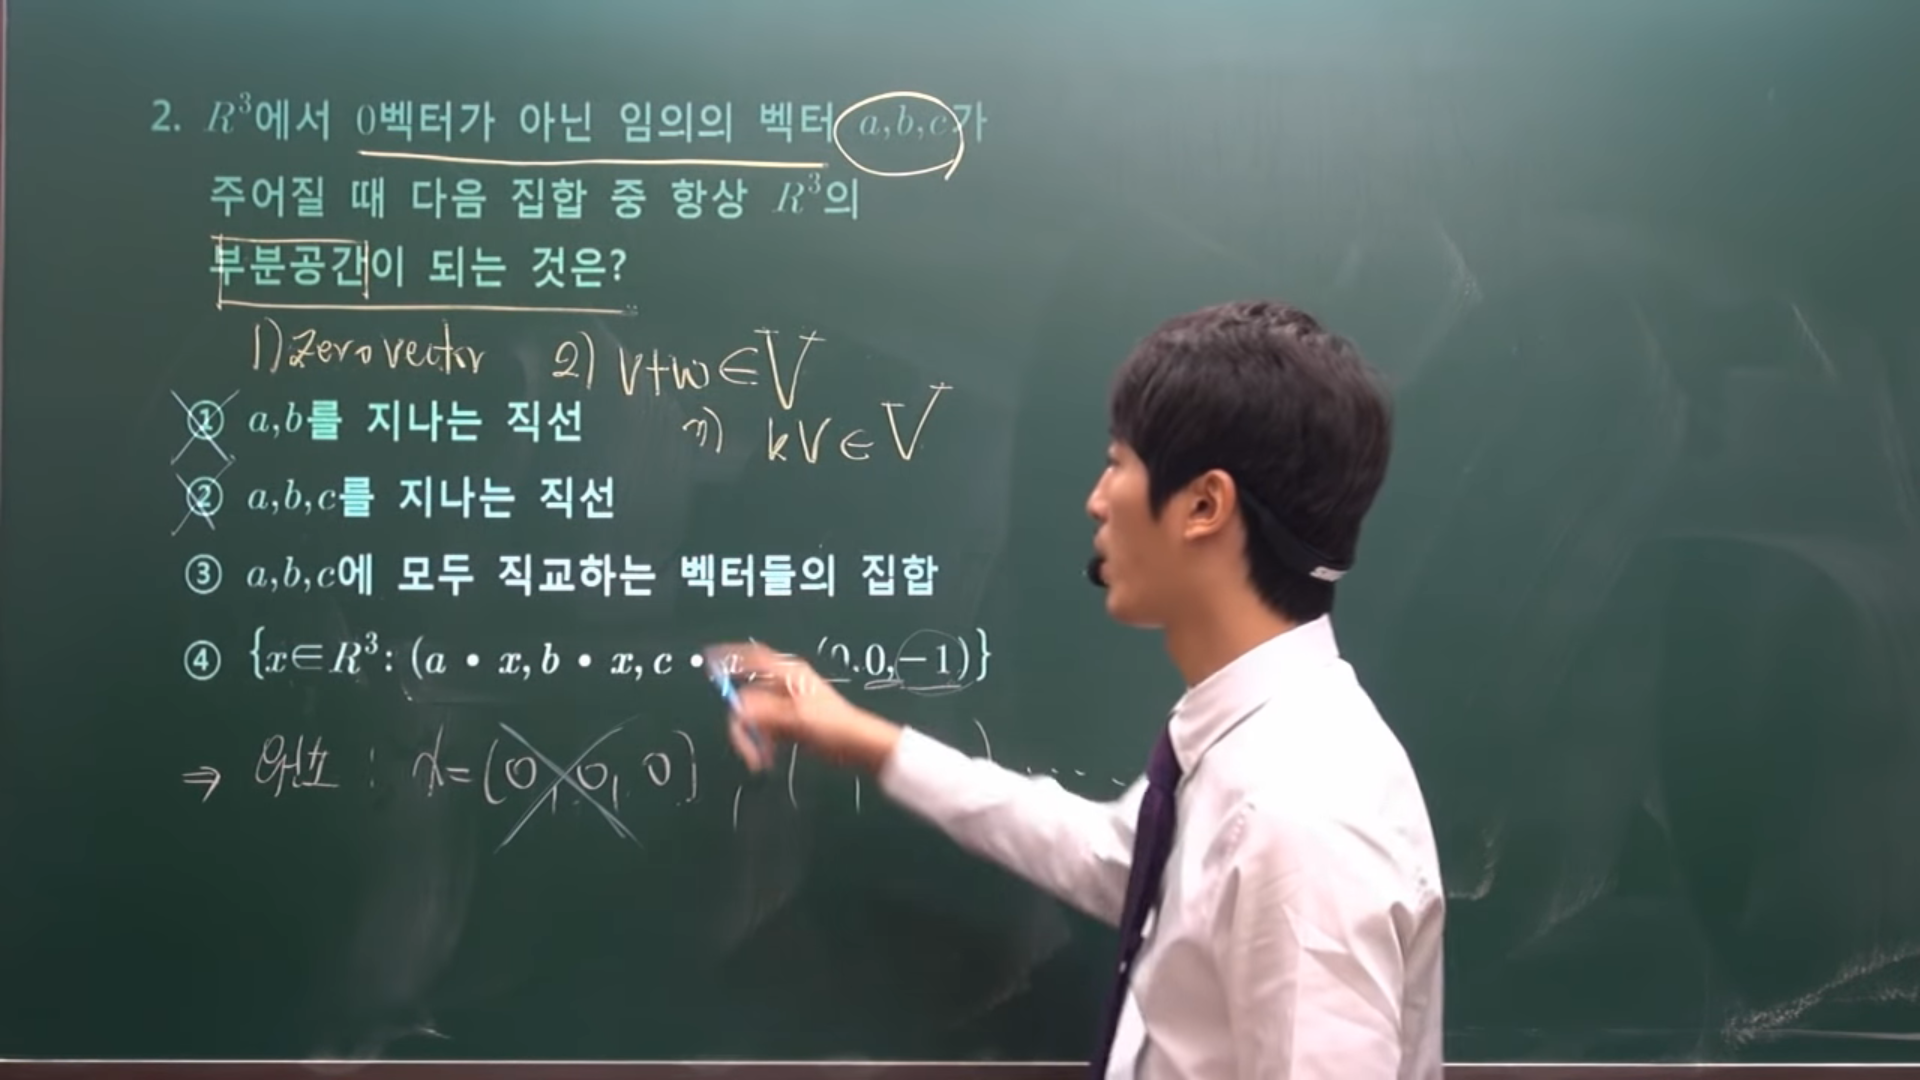 2. R³에서 0벡터가 아닌 임의의 벡터 a,b,c가
주어질 때 다음 집합 중 항상 R³의
부분공간이 되는 것은?
1) Zero vector 2) v+w∈V
① a,b를 지나는 직선
kV∈V
② a,b,c를 지나는 직선
③ a,b,c에 모두 직교하는 벡터들의 집합
④ {x∈R³: (a • x, b • x, c • x) = (0,0,−1)}
⇒ 원소 : x=(0, 0, 0) , ( ,